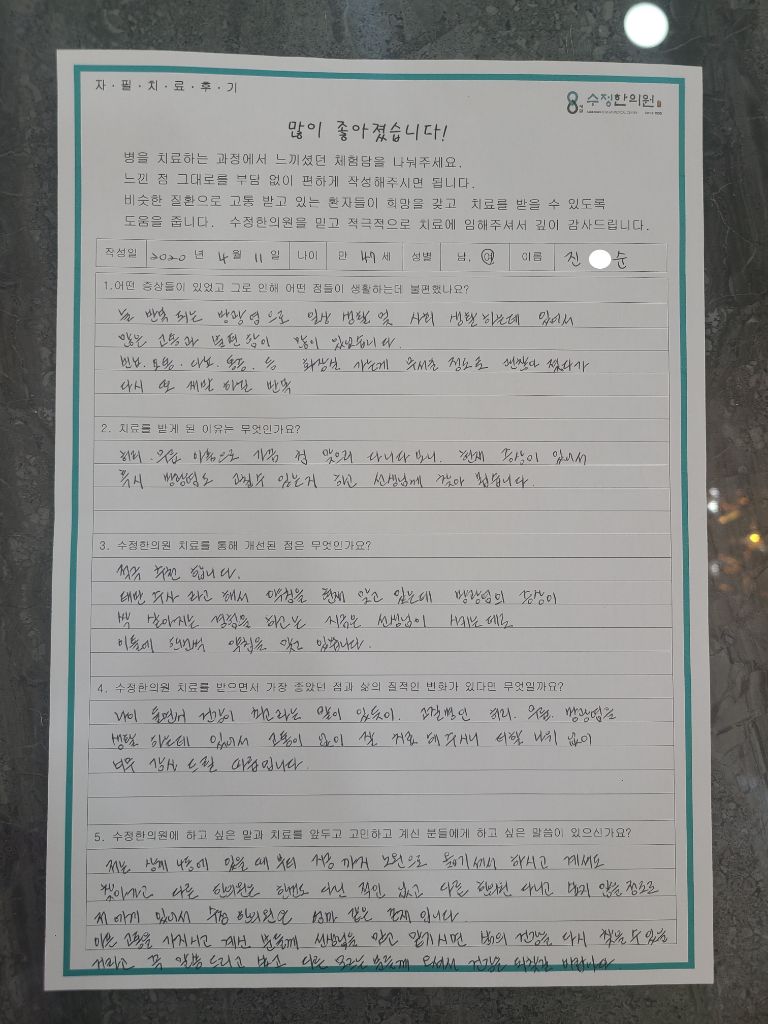 자·필·치·료·후·기
수정한의원
많이 좋아졌습니다!
병을 치료하는 과정에서 느끼셨던 체험담을 나눠주세요.
느낀 점 그대로를 부담 없이 편하게 작성해주시면 됩니다.
비슷한 질환으로 고통 받고 있는 환자들이 희망을 갖고 치료를 받을 수 있도록
도움을 줍니다. 수정한의원을 믿고 적극적으로 치료에 임해주셔서 깊이 감사드립니다.
작성일 2020 년 4 월 11 일 나이 만 47 세 성별 남, 여 이름 진 순
1.어떤 증상들이 있었고 그로 인해 어떤 점들이 생활하는데 불편했나요?
늘 반복 되는 방광염으로 일상 생활 및 사회 생활하는데 있어서
많은 고통과 불편함이 많이 있었습니다.
빈뇨. 요통. 다뇨. 통증. 등 화장실 가는게 무서울 정도로 괜찮아 졌다가
다시 또 재발 하는 반복
2. 치료를 받게 된 이유는 무엇인가요?
허리. 무릎 아픔으로 가끔 침 맞으러 다니다 보니. 현재 증상이 있어서
혹시 방광염도 고칠수 있는지 하고 선생님께 찾아 뵙습니다.
3. 수정한의원 치료를 통해 개선된 점은 무엇인가요?
적극 추천 합니다.
태반 주사 라고 해서 약침을 현재 맞고 있는데 방광염의 증상이
싹 살아지는 경험을 하고는 지금은 선생님이 시키는데로
이틀에 한번씩 약침을 맞고 있습니다.
4. 수정한의원 치료를 받으면서 가장 좋았던 점과 삶의 질적인 변화가 있다면 무엇일까요?
나이 들면서 건강이 최고라는 말이 있듯이. 고질병인 허리. 무릎. 방광염을
생활 하는데 있어서 고통이 없이 잘 치료 해 주시니 더할 나위 없이
너무 감사 드릴 따름입니다.
5. 수정한의원에 하고 싶은 말과 치료를 앞두고 고민하고 계신 분들에게 하고 싶은 말씀이 있으신가요?
저는 상계 4동에 있을 때 부터 지금 까지 노원으로 옮기셔서 하시고 계셔도
찾아가고 다른 한의원은 한번도 다닌 적인 없고 다른 한의원 다니고 싶지 않을 정도로
저 에게 있어서 수정 한의원은 엄마 같은 존재 입니다.
아픈 고통을 가지시고 계신 분들께 선생님을 믿고 맡기시면 몸의 건강을 다시 찾을수 있을
거라고 꼭 말씀 드리고 싶고 다른 모르는 분들께 오셔서 건강을 되찾길 바랍니다.